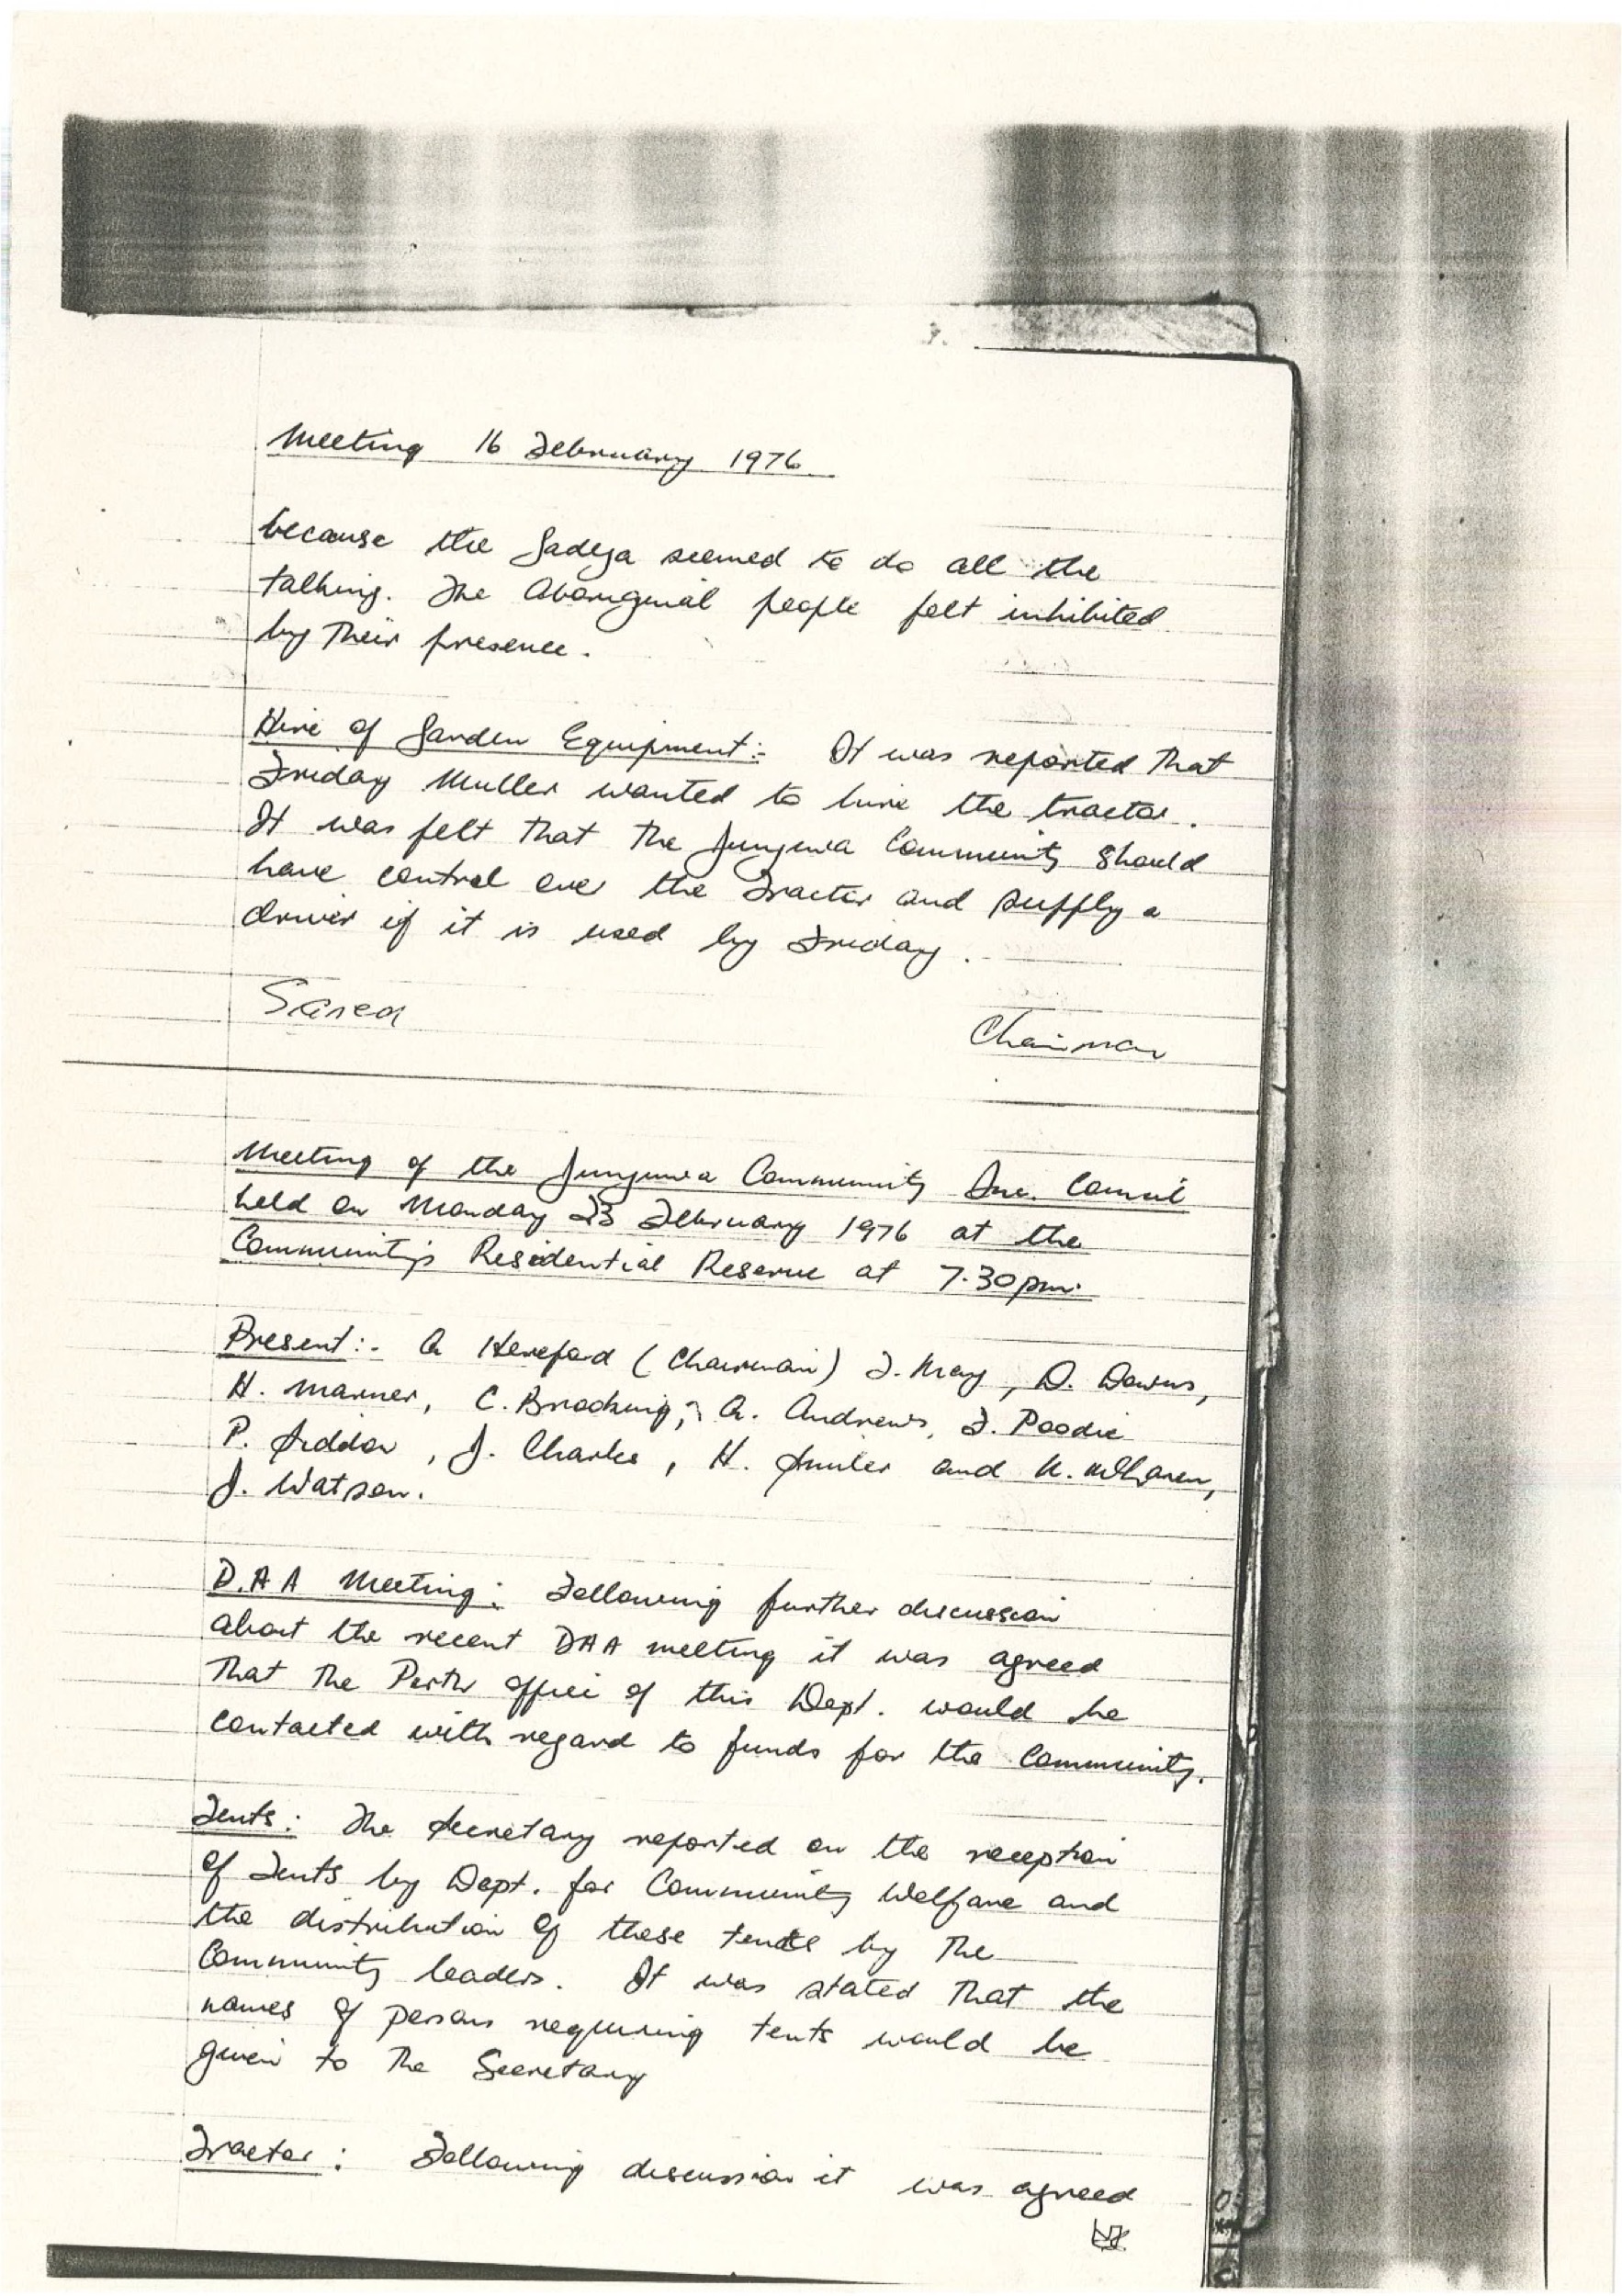 Meeting 16 February 1976
because the Gadeya seemed to do all the
talking. The Aboriginal people felt inhibited
by their presence.
Hire of Garden Equipment:- It was reported that
Friday Muller wanted to hire the tractor.
It was felt that the Junjuwa Community should
have control over the Tractor and supply a
driver if it is used by Friday.
Signed
Chairman
Meeting of the Junjuwa Community Inc. Council
held on Monday 23 February 1976 at the
Community's Residential Reserve at 7.30pm.
Present:- A Hereford (Chairman) J. May, D. Downs,
H. Marner, C. Brooking, A. Andrews, J. Poodie
P. Siddon, J. Charles, H. Smiler and K.
J. Watson.
D.A A Meeting: Following further discussion
about the recent DAA meeting it was agreed
that the Perth office of this Dept. would be
contacted with regard to funds for the Community.
Tents: The Secretary reported on the reception
of Tents by Dept. for Community Welfare and
the distribution of these tents by the
Community leaders. It was stated that the
names of persons requiring tents would be
given to the Secretary
Tractor: Following discussion it was agreed